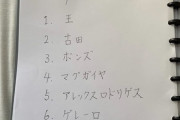 1. 王
2. 古田
3. ボンズ
4. マグガイヤ
5. アレックスロドリゲス
6. ゲレーロ